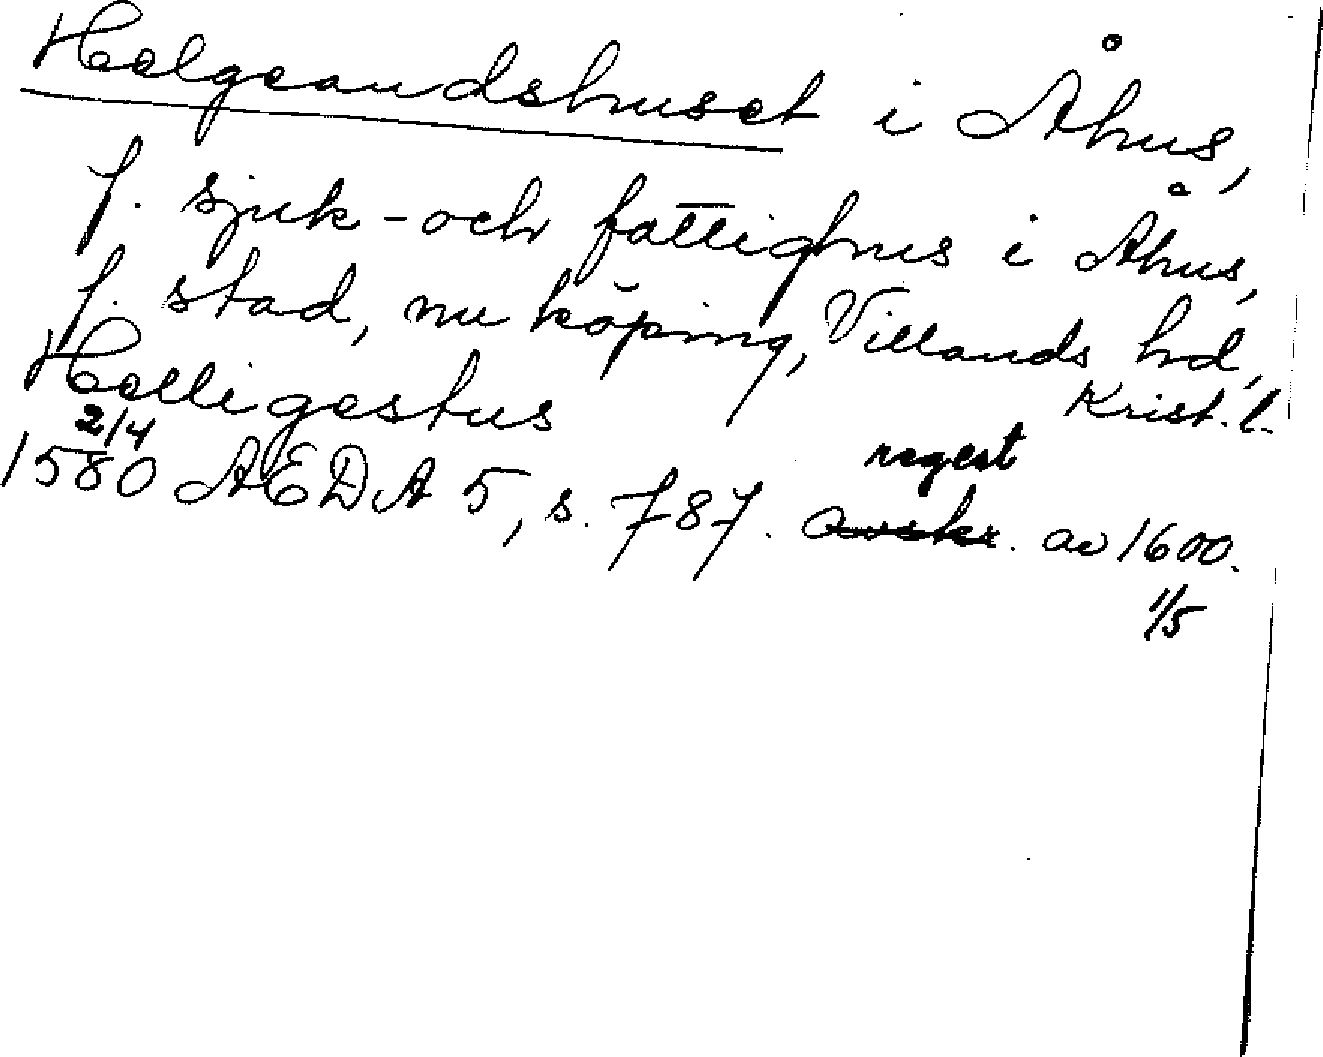 Helgeandshuset i Åhus,
f. sjuk- och fattighus i Åhus,
f. stad, nu köping, Villands hd,
Krist. l.
Helligestus
1580 2/4 AEDA 5, s. 787. regest avskr. av 1600.
1/5